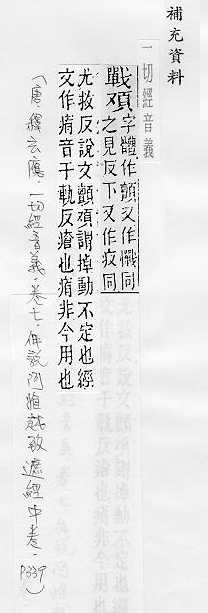 補充資料
一切經音義
戰頏字體作顫又作㦒同
之見反下又作疚同
尤救反說文顫頏謂掉動不定也經
文作痏音于軌反瘡也痏非今用也
（唐．釋玄應．一切經音義．卷七．佛說阿惟越致遮經中卷．P339）